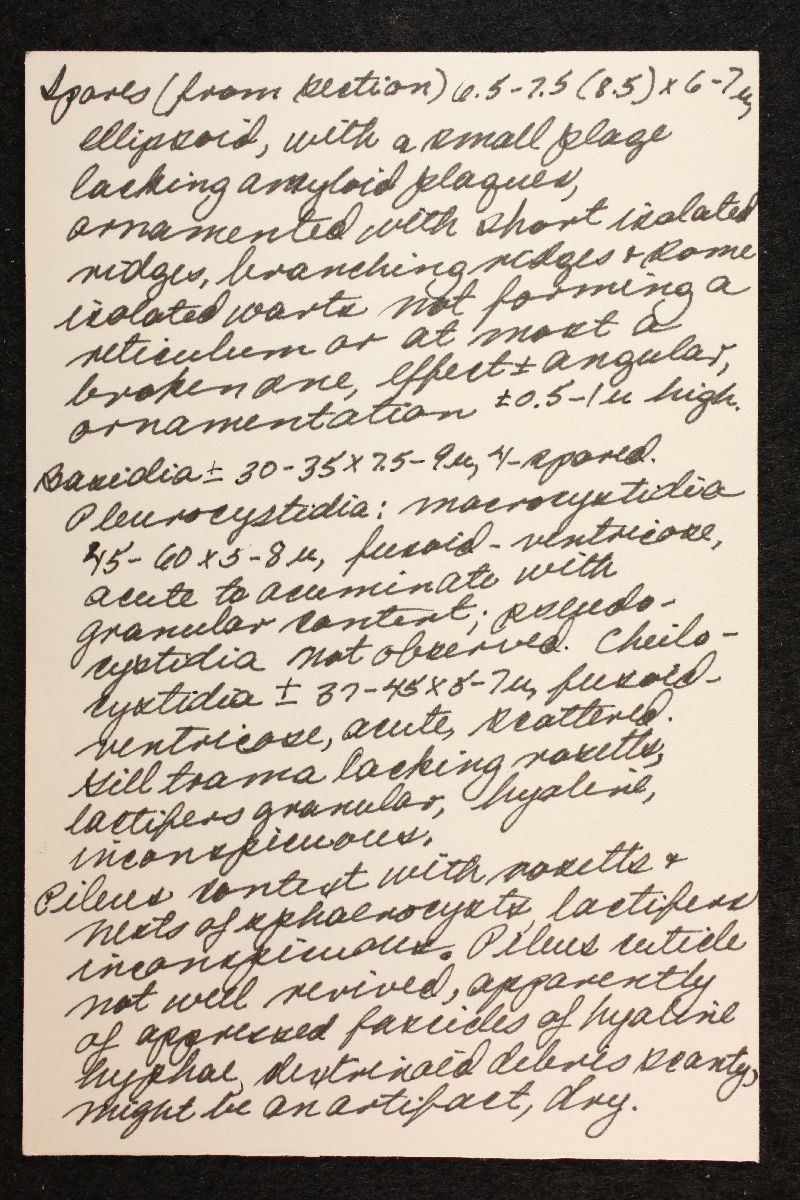 Spores (from section) 6.5-7.5 (8.5) x 6-7 µ,
ellipsoid, with a small plage
lacking amyloid plaques,
ornamented with short isolated
ridges, branching ridges + some
isolated warts not forming a
reticulum or at most a
broken one, effect ± angular,
ornamentation ±0.5-1 u high.
Basidia ± 30-35 x 7.5-9 µ, 4-spored.
Pleurocystidia: macrocystidia
45-60 x 5-8 µ, fusoid-ventricose,
acute to acuminate with
granular content; pseudo-
cystidia not observed. Cheilo-
cystidia ± 37-45 x 5-7 µ, fusoid-
ventricose, acute, scattered.
Gill trama lacking rosetts,
lactifers granular, hyaline,
inconspicuous.
Pileus context with rosetts +
nests of sphaerocysts, lactifers
inconspicuous. Pileus cuticle
not well revived, apparently
of appressed fascicles of hyaline
hyphae, dextrinoid debris scanty,
might be an artifact, dry.